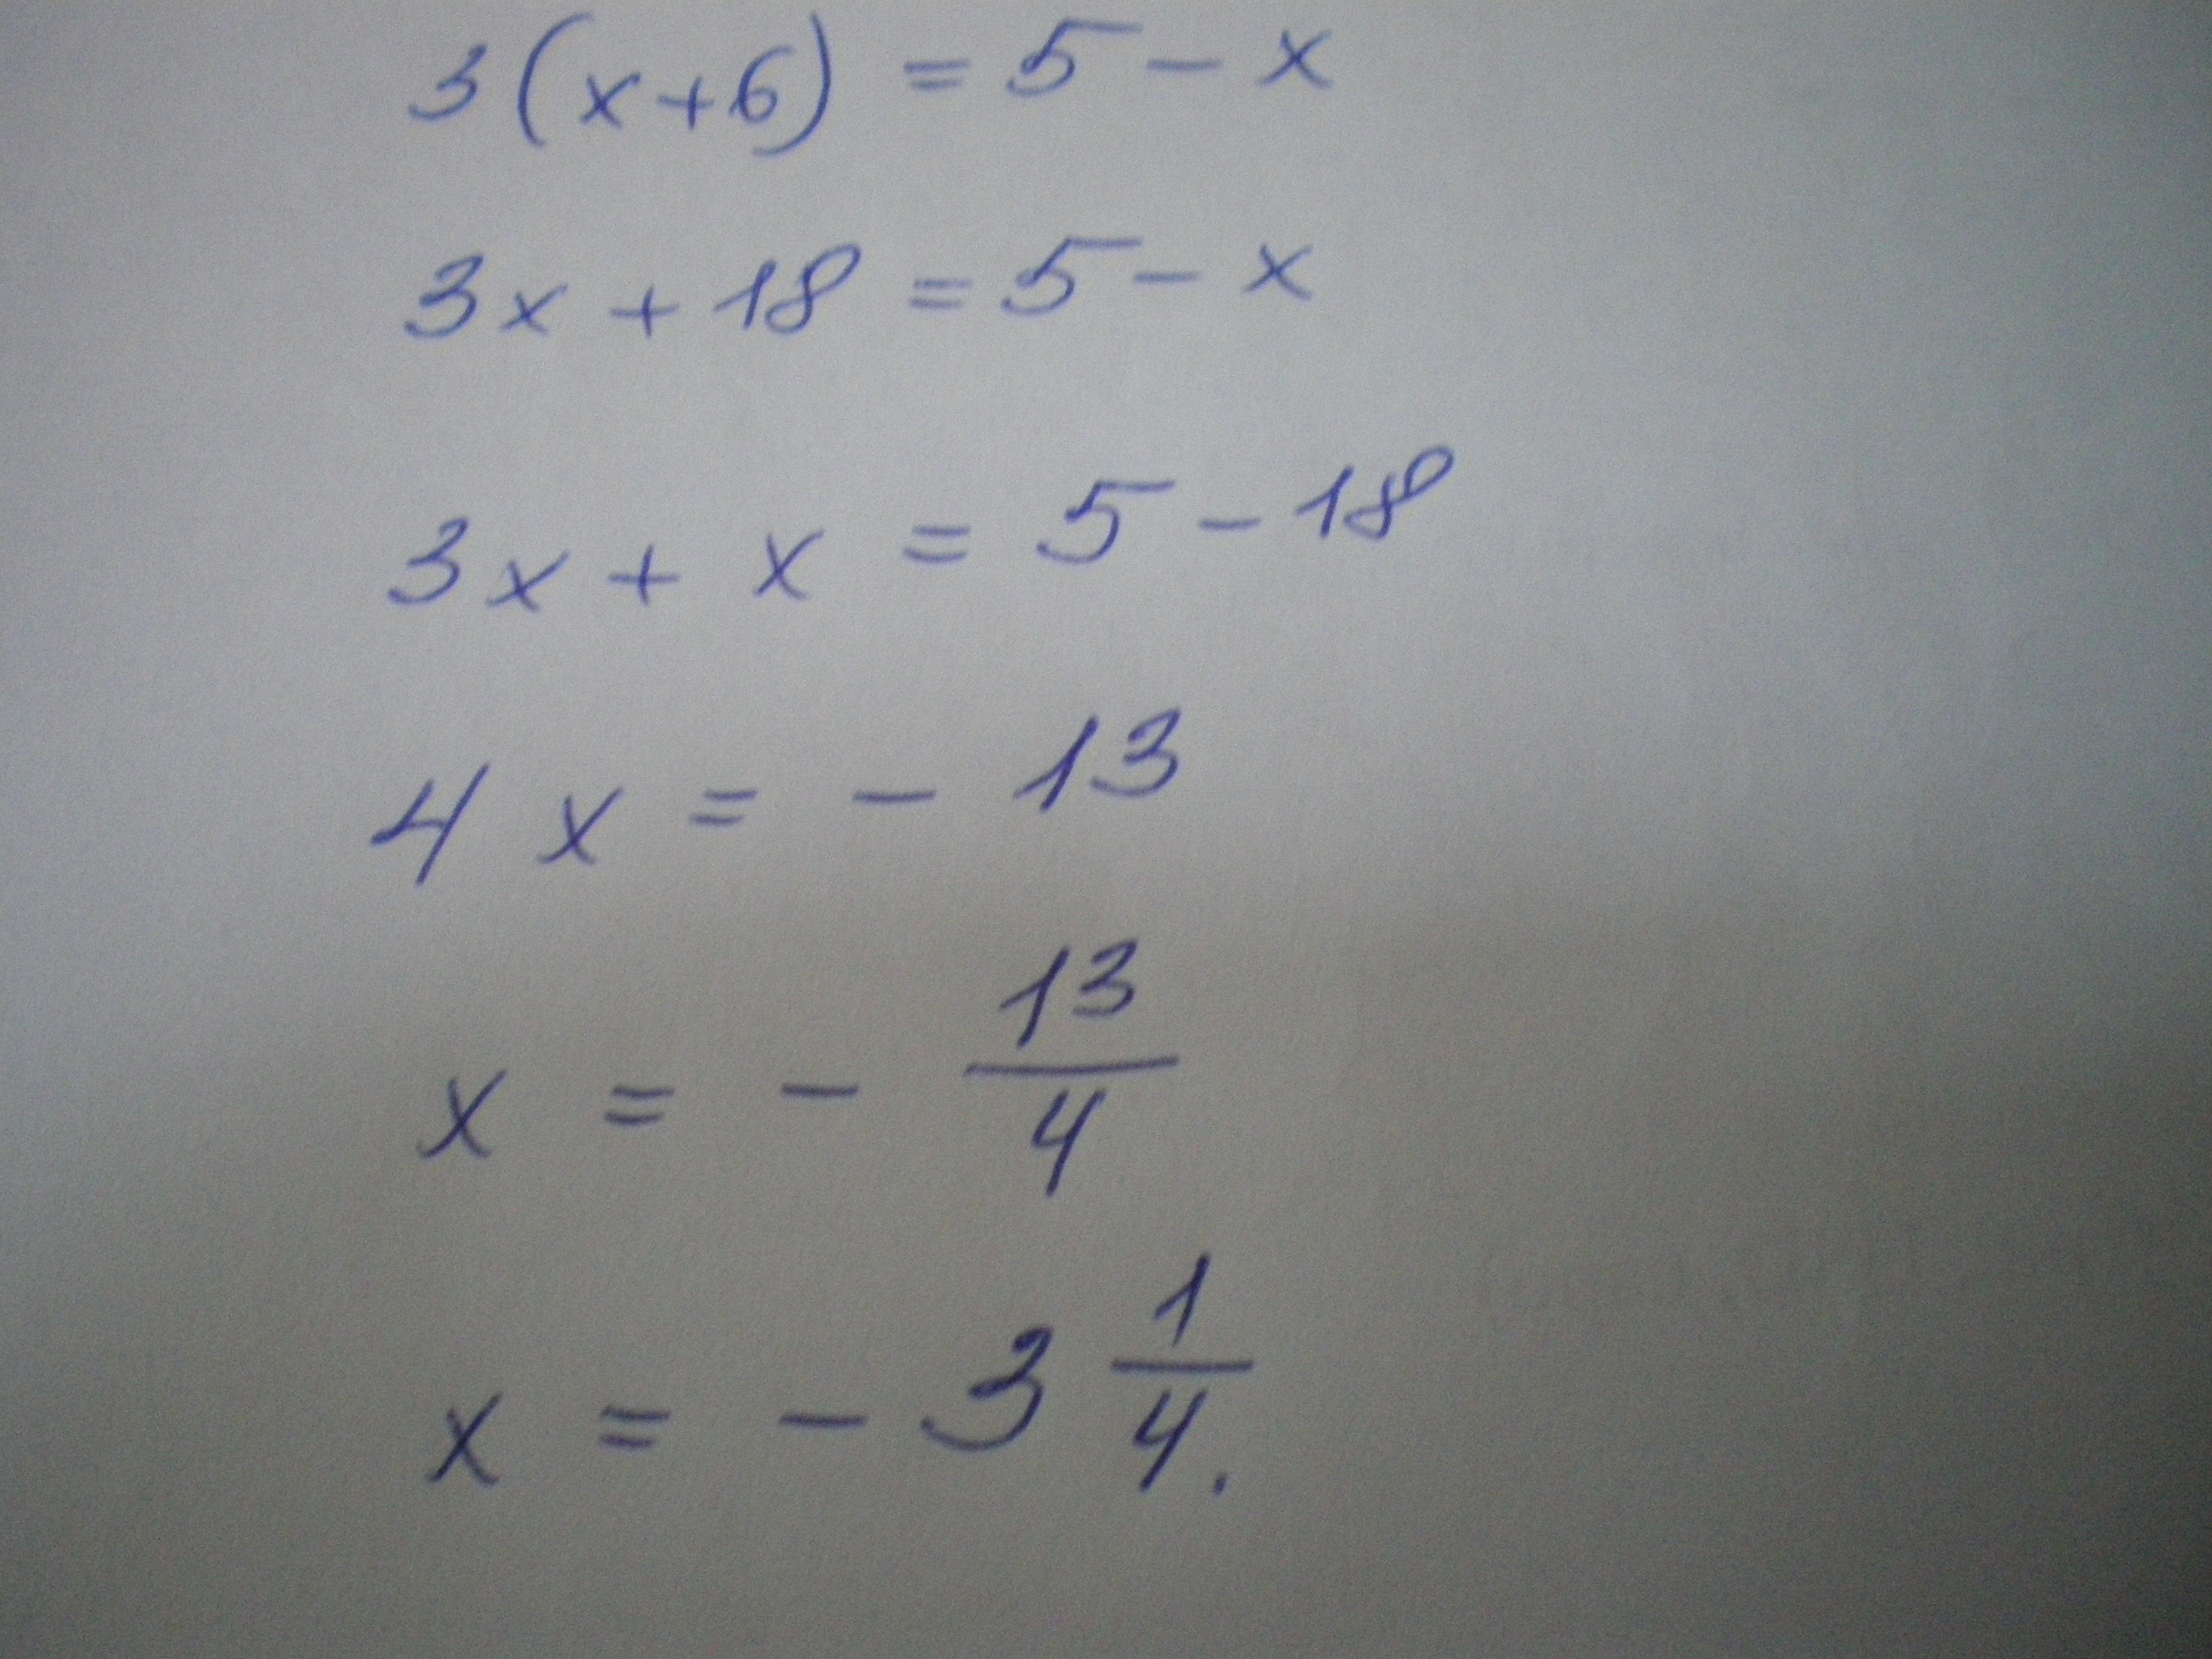 3(x+6) = 5 - x
3x + 18 = 5 - x
3x + x = 5 - 18
4x = - 13
x = - 13/4
x = - 3 1/4.